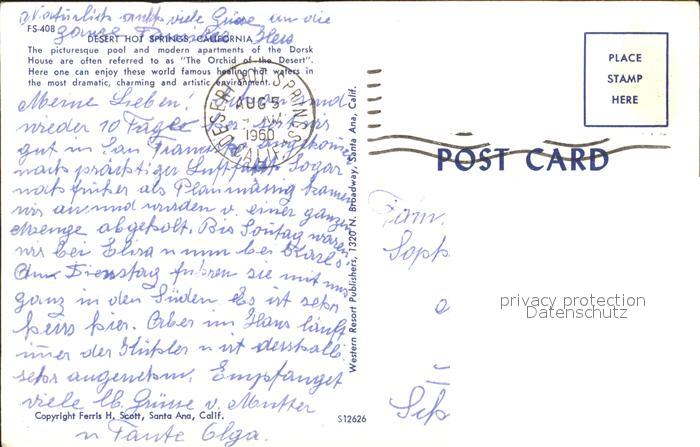 Natürlich viele Grüsse an die
ganze Familie
FS-408
DESERT HOT SPRINGS, CALIFORNIA
The picturesque pool and modern apartments of the Dorsk
House are often referred to as "The Orchid of the Desert".
Here one can enjoy these world famous healing hot waters in
the most dramatic, charming and artistic environment.
Meine Lieben! sind
wieder 10 Tage
gut in San Francisco angekommen
nach prächtiger Luftfahrt Sogar
noch früher als Planmässig kamen
wir an und wurden v. einer ganzen
Menge abgeholt. Bis Sontag waren
wir bei Elisa u nun bei Karls.
Dienstag fuhren sie mit uns
ganz in den Süden Es ist sehr
heiss hier. Aber im Haus läuft
imer der Kühler u ist desshalb
sehr angenehm. Empfanget
viele lb. Grüsse v. Mutter
u Tante Olga.
Copyright Ferris H. Scott, Santa Ana, Calif.
S12626
DESERT HOT SPRINGS
AUG 5
1960
CALIF.
Western Resort Publishers, 1320 N. Broadway, Santa Ana, Calif.
PLACE
STAMP
HERE
POST CARD
Fam.
Soph
privacy protection
Datenschutz